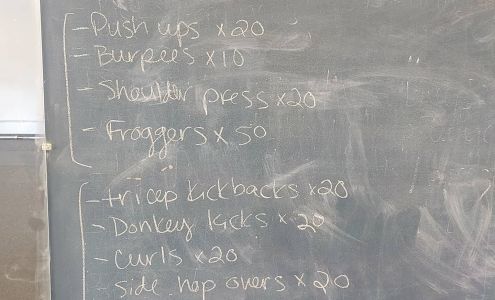 - Push ups x20
- Burpees x10
- Shoulder press x20
- Froggers x 50
- tricep kickbacks x20
- Donkey kicks x 20
- Curls x20
- side hop overs x 20